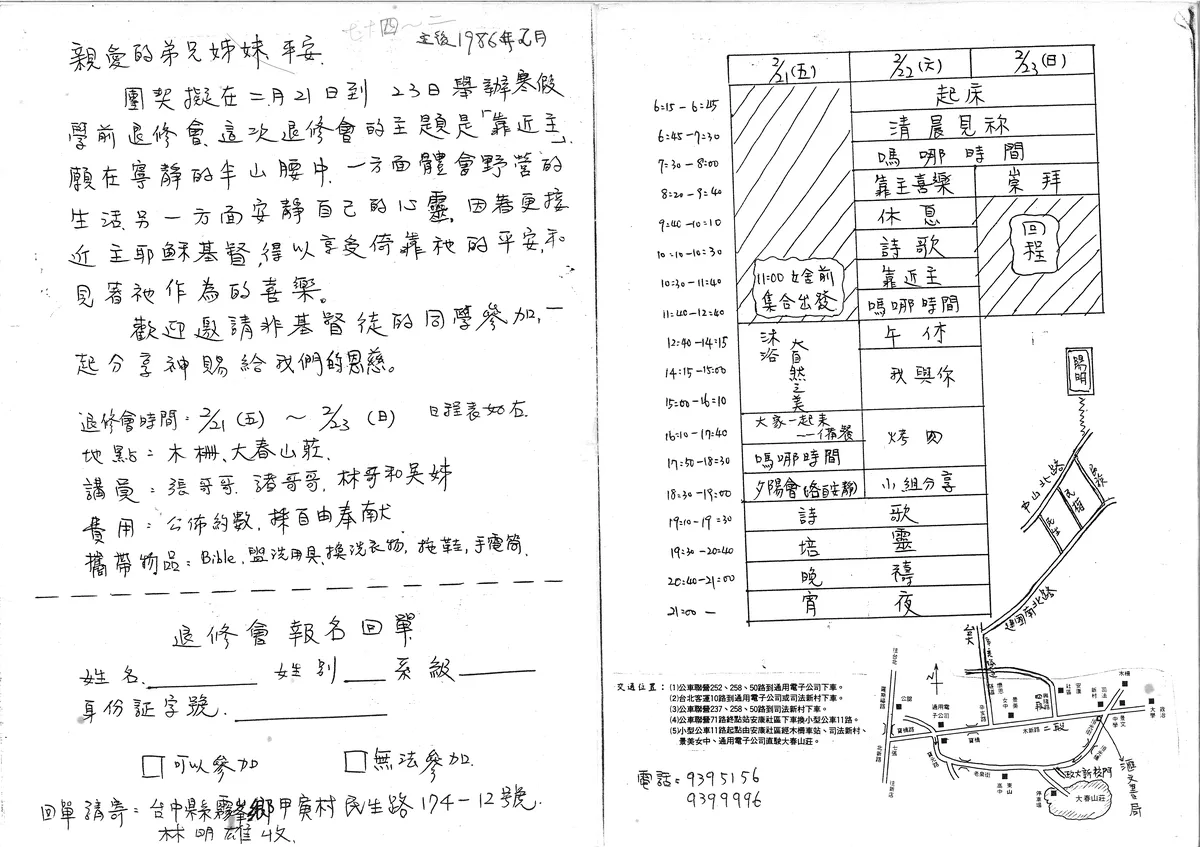 七十四～二
主後1986年元月
親愛的弟兄姊妹 平安.
團契擬在二月21日到 23日舉辦寒假
學前退修會,這次退修會的主題是「靠近主」,
願在寧靜的半山腰中,一方面體會野營的
生活,另一方面安靜自己的心靈,因著更接
近主耶穌基督,得以享受倚靠祂的平安,和
見著祂作為的喜樂。
歡迎邀請非基督徒的同學參加,一
起分享神賜給我們的恩慈。
退修會時間:2/21(五) ～ 2/23(日) 日程表如右.
地點:木柵,大春山莊.
講員:張哥哥,諸哥哥,林哥和吳姊
費用:公佈約數,採自由奉献
攜帶物品:Bible,盥洗用具,換洗衣物,拖鞋,手電筒.
退修會報名回單
姓名 姓別 系級
身份証字號
可以參加 無法參加.
回單請寄:台中縣霧峰鄉甲寅村民生路174-12號.
林明雄收.
2/21(五) 2/22(六) 2/23(日)
6:15-6:45 起床
6:45-7:30 清晨見祢
7:30-8:00 嗎哪時間
8:20-9:40 靠主喜樂 崇拜
9:40-10:10 休息
回程
10:10-10:30 詩歌
10:30-11:40 靠近主
11:00 女舍前
集合出發
11:40-12:40 嗎哪時間
12:40-14:15 沐浴大自然之美 午休
14:15-15:00 我與你
15:00-16:10
16:10-17:40 大家一起來
--備餐 烤肉
17:50-18:30 嗎哪時間
18:30-19:00 夕陽會(各自安靜) 小組分享
19:10-19:30 詩歌
19:30-20:40 培靈
20:40-21:00 晚禱
21:00- 宵夜
陽明
中山北路
民族
民權
民生
建國南北路
台大
辛亥隧道
交通位置:(1)公車聯營252、258、50路到通用電子公司下車。
(2)台北客運10路到通用電子公司或司法新村下車。
(3)公車聯營237、258、50路到司法新村下車。
(4)公車聯營71路終點站安康社區下車換小型公車11路。
(5)小型公車11路起點由安康社區經木柵車站、司法新村、
景美女中、通用電子公司直駛大春山莊。
往台北
N
羅斯福路
公館
通用電子公司
景美女中
興隆路
四段
安康社區
司法新村
木柵
寶橋路
寶橋
木新路
二段
景文中學
政治大學
北新路
七張
老泉街
東山高中
往新店
政大新校門
停車場
大春山莊
電話:9395156
9399996